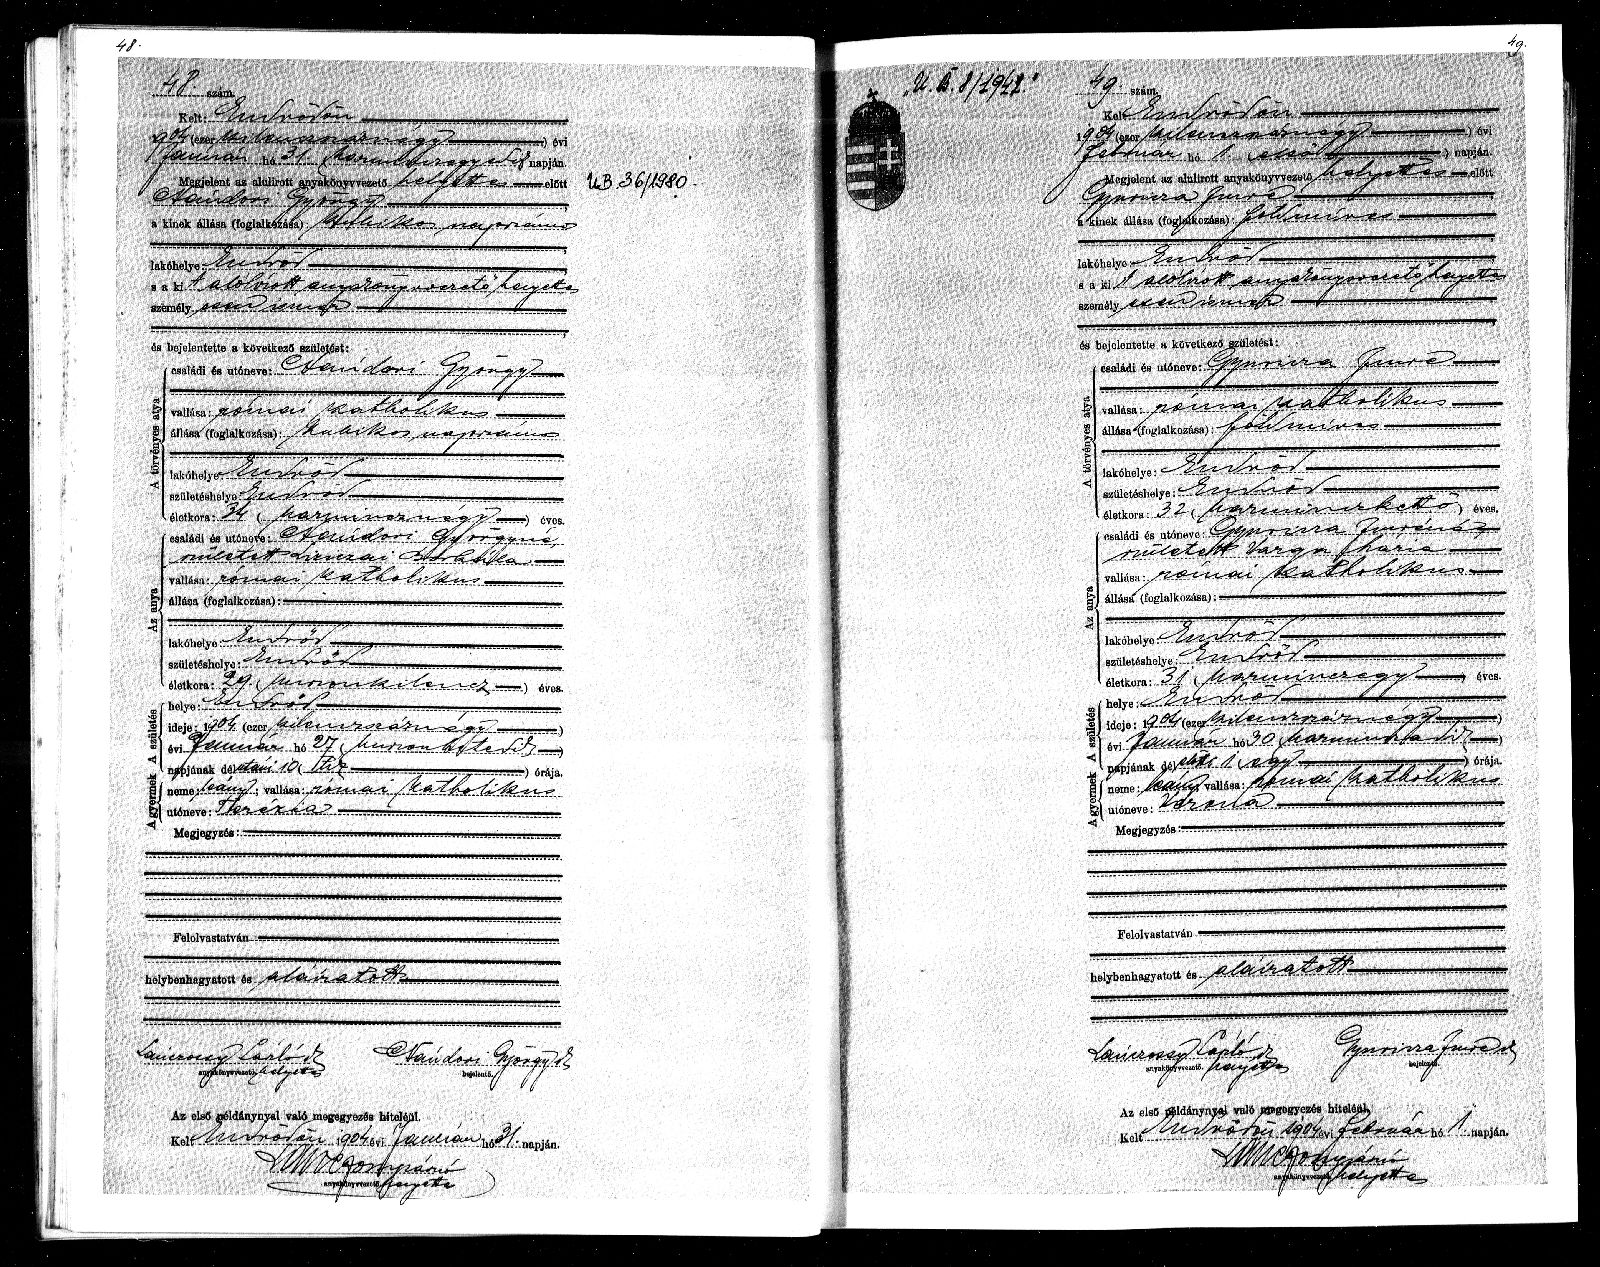 48.
48. szám.
Kelt: Endrődön
1904 (ezer kilencszáznégy) évi
Január hó 31 (harminczegyedik) napján.
Megjelent az alulirott anyakönyvvezető helyettes előtt
Nándori György
a kinek állása (foglalkozása): kubikos napszámos
lakóhelye: Endrőd
s a ki t alólirott anyakönyvvezető helyettes
személyesen ismer
és bejelentette a következő születést:
A törvényes atya
családi és utóneve: Nándori György
vallása: római katholikus
állása (foglalkozása): kubikos napszámos
lakóhelye: Endrőd
születéshelye: Endrőd
életkora: 34 (harmincznégy) éves.
Az anya
családi és utóneve: Nándori Györgyné,
született Borbála
vallása: római katholikus
állása (foglalkozása):
lakóhelye: Endrőd
születéshelye: Endrőd
életkora: 29 (huszonkilencz) éves.
A születés
helye: Endrőd
ideje: 1904 (ezer kilencszáznégy)
évi Január hó 27 (huszonhetedik)
napjának délutáni 10 (tíz) órája.
A gyermek
neme: leány; vallása: római katholikus
utóneve: Terézia
Megjegyzés:
Felolvastatván
helybenhagyatott és aláiratott
László
anyakönyvvezető. helyettes
Nándori György
bejelentő.
Az első példánynyal való megegyezés hiteléül.
Kelt Endrődön 1904 évi Január hó 31. napján.
anyakönyvvezető helyettes
UB 36/1980.
49.
U. B. 8/1942.
49 szám.
Kelt Endrődön
1904 (ezer kilencszáznégy) évi
február hó 1. (első) napján.
Megjelent az alulirott anyakönyvvezető helyettes előtt
Gyuricza Imre
a kinek állása (foglalkozása): földmíves
lakóhelye: Endrőd
s a ki t alólirott anyakönyvvezető helyettes
személyesen ismer
és bejelentette a következő születést:
A törvényes atya
családi és utóneve: Gyuricza Imre
vallása: római katholikus
állása (foglalkozása): földmíves
lakóhelye: Endrőd
születéshelye: Endrőd
életkora: 32 (harminczkettő) éves.
Az anya
családi és utóneve: Gyuricza Imréné,
született Varga Mária
vallása: római katholikus
állása (foglalkozása):
lakóhelye: Endrőd
születéshelye: Endrőd
életkora: 31 (harminczegy) éves.
A születés
helye: Endrőd
ideje: 1904 (ezer kilencszáznégy)
évi Január hó 30 (harminczadik)
napjának délelőtti 1 (egy) órája.
A gyermek
neme: leány vallása: római katholikus
utóneve: Verona
Megjegyzés:
Felolvastatván
helybenhagyatott és aláiratott
László
anyakönyvvezető. helyettes
Gyuricza Imre
bejelentő.
Az első példánynyal való megegyezés hiteléül.
Kelt Endrődön 1904 évi február hó 1. napján.
anyakönyvvezető helyettes